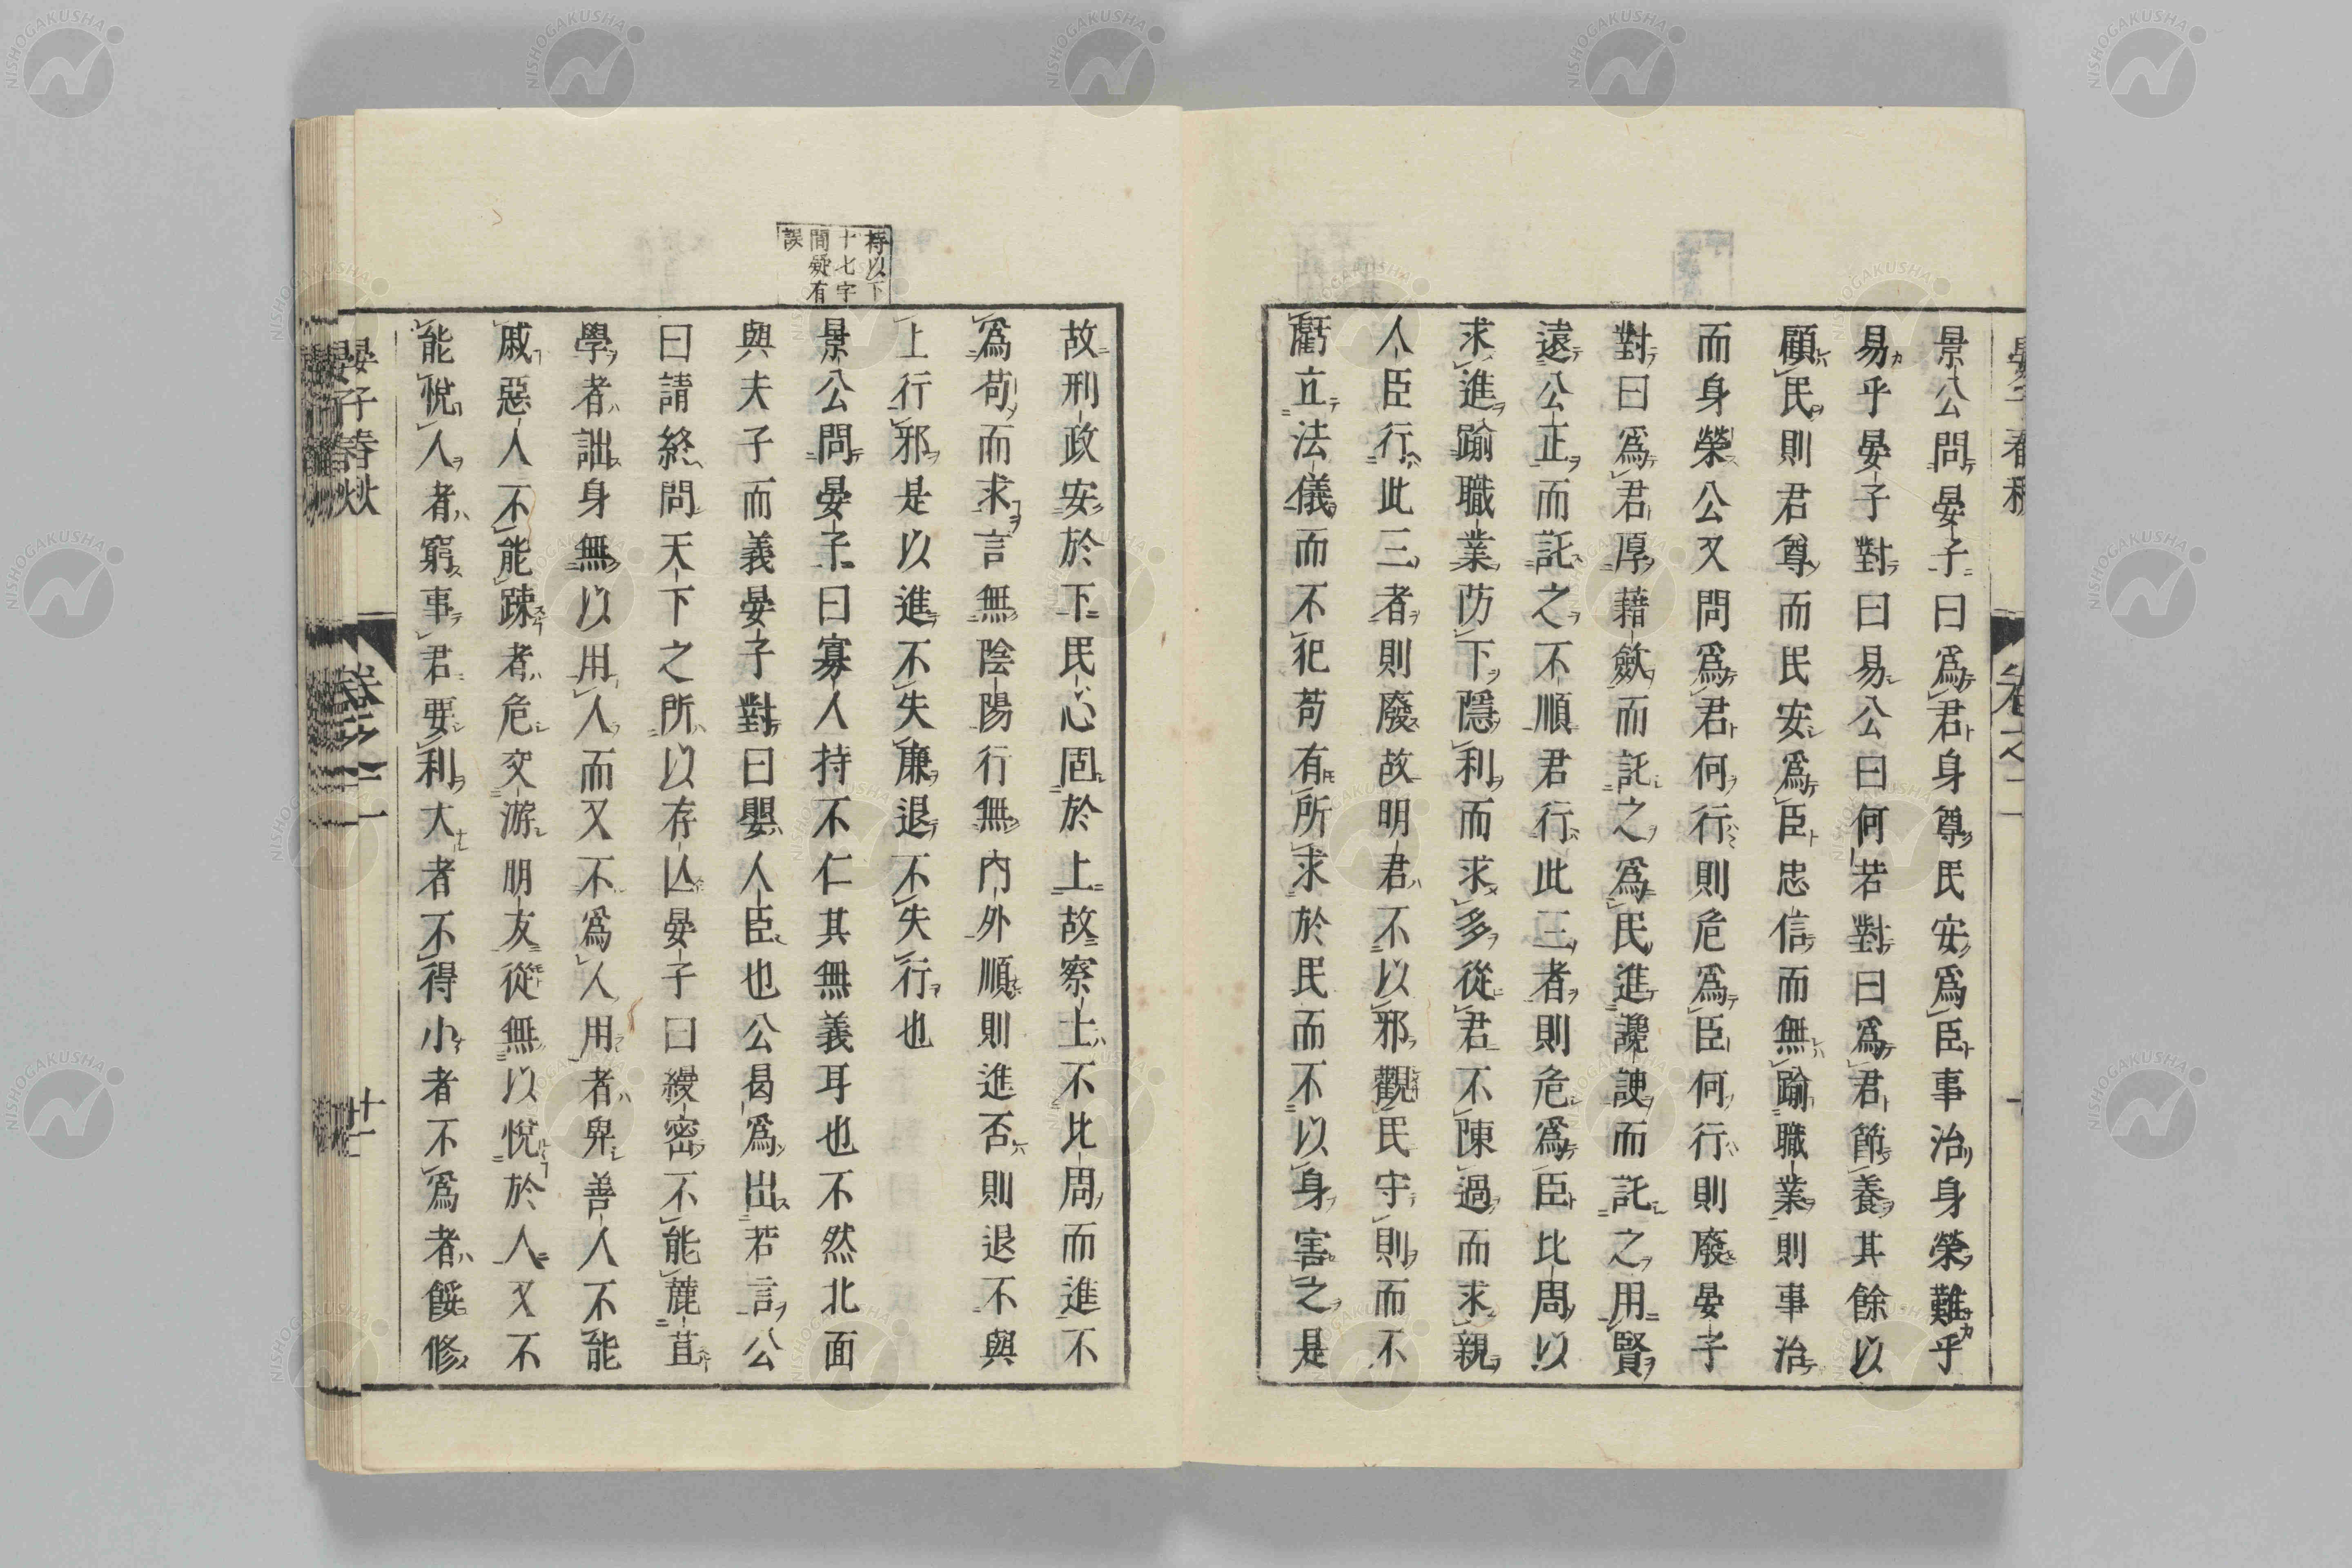 景公問晏子曰爲君身尊民安爲臣事治身榮難乎
易乎晏子對曰易公曰何若對曰爲君節養其餘以
顧民則君尊而民安爲臣忠信而無踰職業則事治
而身榮公又問爲君何行則危爲臣何行則廢晏子
對曰爲君厚藉歛而託之爲民進讒諛而託之用賢
遠公正而託之不順君行此三者則危爲臣比周以
求進踰職業防下隱利而求多從君不陳過而求親
人臣行此三者則廢故明君不以邪觀民守則而不
虧立法儀而不犯苟有所求於民而不以身害之是
故刑政安於下民心固於上故察士不比周而進不
爲苟而求言無陰陽行無內外順則進否則退不與
上行邪是以進不失廉退不失行也
持以下
十七字
間疑有
誤
景公問晏子曰寡人持不仁其無義耳也不然北面
與夫子而義晏子對曰嬰人臣也公曷爲出若言公
曰請終問天下之所以存亾晏子曰縵密不能蔍苴
學者詘身無以用人而又不爲人用者卑善人不能
戚惡人不能踈者危交游朋友從無以悅於人又不
能悅人者窮事君要利大者不得小者不爲者餒修
晏子春秋
卷之二
十一
NISHOGAKUSHA